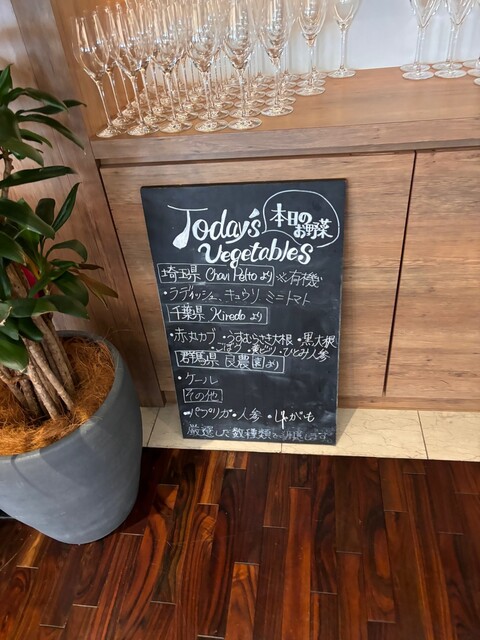 Today's
Vegetables
本日の
お野菜
埼玉県 Chavi Pelto より ※有機
・ラディッシュ、キュウリ ミニトマト
千葉県 Kiredo より
・赤丸カブ ・うすむらさき大根 ・黒大根
・ごぼう ・黄ビーツ ・ひとみ人参
群馬県 良農園より
・ケール
その他
・パプリカ・人参 ・じゃがいも
厳選した数種類をご用意します